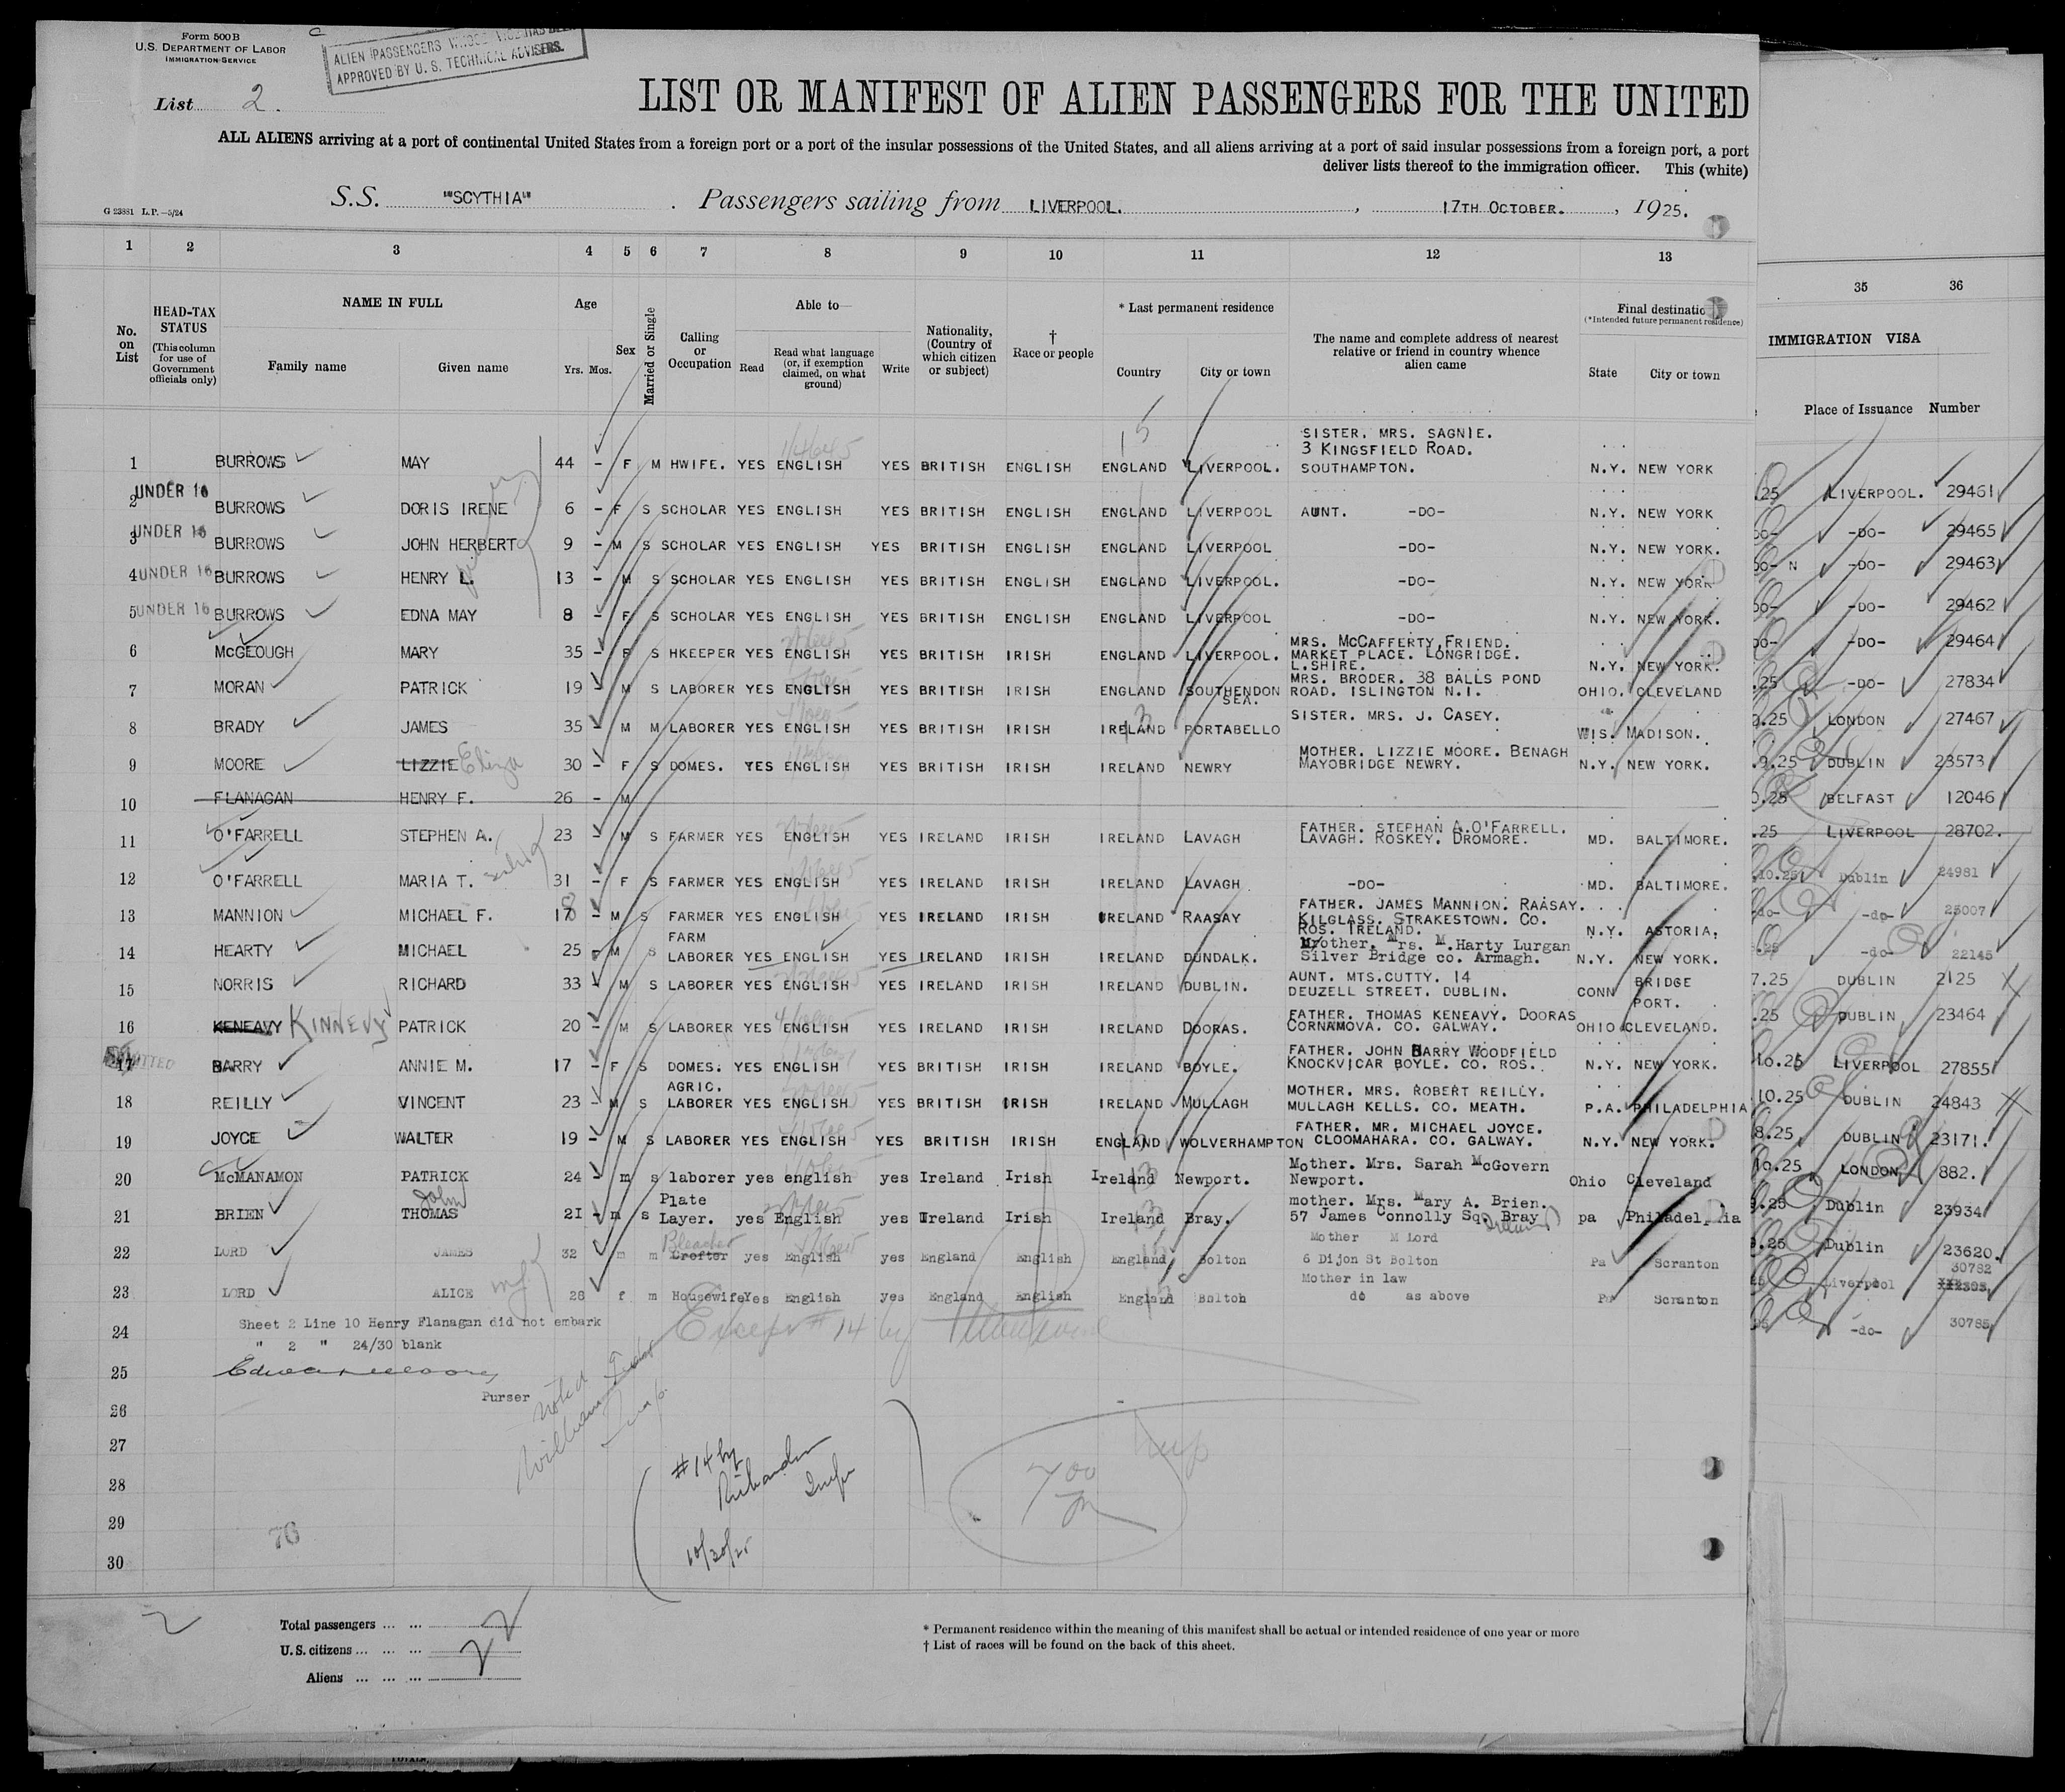 Form 500 B
U.S. DEPARTMENT OF LABOR
IMMIGRATION SERVICE
ALIEN PASSENGERS WHOSE HAS BEEN
APPROVED BY U. S. TECHNICAL ADVISERS.
List 2.
LIST OR MANIFEST OF ALIEN PASSENGERS FOR THE UNITED
ALL ALIENS arriving at a port of continental United States from a foreign port or a port of the insular possessions of the United States, and all aliens arriving at a port of said insular possessions from a foreign port, a port
deliver lists thereof to the immigration officer. This (white)
G 23881 L.P.—5/24
S.S. "SCYTHIA" . Passengers sailing from LIVERPOOL. , 17TH OCTOBER. , 1925.
1 2 3 4 5 6 7 8 9 10 11 12 13 35 36
No. on List
HEAD-TAX STATUS (This column for use of Government officials only)
NAME IN FULL
Family name Given name
Age
Yrs. Mos.
Sex
Married or Single
Calling or Occupation
Able to—
Read
Read what language (or, if exemption claimed, on what ground)
Write
Nationality, (Country of which citizen or subject)
† Race or people
* Last permanent residence
Country City or town
The name and complete address of nearest relative or friend in country whence alien came
Final destination
(*Intended future permanent residence)
State City or town
IMMIGRATION VISA
Place of Issuance Number
SISTER. MRS. SAGNIE.
3 KINGSFIELD ROAD.
1 BURROWS MAY 44 – F M HWIFE. YES ENGLISH YES BRITISH ENGLISH ENGLAND LIVERPOOL. SOUTHAMPTON. N.Y. NEW YORK
.25 LIVERPOOL. 29461
UNDER 16
2 BURROWS DORIS IRENE 6 – F S SCHOLAR YES ENGLISH YES BRITISH ENGLISH ENGLAND LIVERPOOL AUNT. -DO- N.Y. NEW YORK
DO- -DO- 29465
UNDER 16
3 BURROWS JOHN HERBERT 9 – M S SCHOLAR YES ENGLISH YES BRITISH ENGLISH ENGLAND LIVERPOOL -DO- N.Y. NEW YORK.
DO- N -DO- 29463
4 UNDER 16 BURROWS HENRY L. 13 – M S SCHOLAR YES ENGLISH YES BRITISH ENGLISH ENGLAND LIVERPOOL. -DO- N.Y. NEW YORK
DO- -DO- 29462
5 UNDER 16 BURROWS EDNA MAY 8 – F S SCHOLAR YES ENGLISH YES BRITISH ENGLISH ENGLAND LIVERPOOL -DO- N.Y. NEW YORK.
DO- -DO- 29464
MRS. McCAFFERTY, FRIEND.
6 McGEOUGH MARY 35 – F S HKEEPER YES ENGLISH YES BRITISH IRISH ENGLAND LIVERPOOL. MARKET PLACE. LONGRIDGE.
L.SHIRE. N.Y. NEW YORK.
.25 -DO- 27834
MRS. BRODER. 38 BALLS POND
7 MORAN PATRICK 19 – M S LABORER YES ENGLISH YES BRITISH IRISH ENGLAND SOUTHENDON SEA. ROAD. ISLINGTON N.I. OHIO. CLEVELAND
.25 LONDON 27467
SISTER. MRS. J. CASEY.
8 BRADY JAMES 35 – M M LABORER YES ENGLISH YES BRITISH IRISH IRELAND PORTABELLO WIS. MADISON.
.9.25 DUBLIN 23573
MOTHER. LIZZIE MOORE. BENAGH
9 MOORE LIZZIE Eliza 30 – F S DOMES. YES ENGLISH YES BRITISH IRISH IRELAND NEWRY MAYOBRIDGE NEWRY. N.Y. NEW YORK.
0.25 BELFAST 12046
10 FLANAGAN HENRY F. 26 – M
.25 LIVERPOOL 28702.
FATHER. STEPHAN A.O'FARRELL.
11 O'FARRELL STEPHEN A. 23 – M S FARMER YES ENGLISH YES IRELAND IRISH IRELAND LAVAGH LAVAGH. ROSKEY. DROMORE. MD. BALTIMORE.
.10.25 Dublin 24981
12 O'FARRELL MARIA T. 31 – F S FARMER YES ENGLISH YES IRELAND IRISH IRELAND LAVAGH -DO- MD. BALTIMORE.
-do- -do- 25007
FATHER. JAMES MANNION. RAASAY.
13 MANNION MICHAEL F. 17 8 – M S FARMER YES ENGLISH YES IRELAND IRISH IRELAND RAASAY KILGLASS. STRAKESTOWN. CO.
ROS. IRELAND. N.Y. ASTORIA.
.25 -do- 22145
FARM
Mother. Mrs. M.Harty Lurgan
14 HEARTY MICHAEL 25 – M S LABORER YES ENGLISH YES IRELAND IRISH IRELAND DUNDALK. Silver Bridge co. Armagh. N.Y. NEW YORK.
7.25 DUBLIN 2125
AUNT. MTS.CUTTY. 14
15 NORRIS RICHARD 33 – M S LABORER YES ENGLISH YES IRELAND IRISH IRELAND DUBLIN. DEUZELL STREET. DUBLIN. CONN BRIDGE PORT.
.25 DUBLIN 23464
FATHER. THOMAS KENEAVY. DOORAS
16 KENEAVY KINNEVY PATRICK 20 – M S LABORER YES ENGLISH YES IRELAND IRISH IRELAND DOORAS. CORNAMOVA. CO. GALWAY. OHIO CLEVELAND.
10.25 LIVERPOOL 27855
FATHER. JOHN BARRY WOODFIELD
17 BARRY ANNIE M. 17 – F S DOMES. YES ENGLISH YES BRITISH IRISH IRELAND BOYLE. KNOCKVICAR BOYLE. CO. ROS. N.Y. NEW YORK.
10.25 DUBLIN 24843
AGRIC.
MOTHER. MRS. ROBERT REILLY.
18 REILLY VINCENT 23 – M S LABORER YES ENGLISH YES BRITISH IRISH IRELAND MULLAGH MULLAGH KELLS. CO. MEATH. P.A. PHILADELPHIA
8.25 DUBLIN 23171.
FATHER. MR. MICHAEL JOYCE.
19 JOYCE WALTER 19 – M S LABORER YES ENGLISH YES BRITISH IRISH ENGLAND WOLVERHAMPTON CLOOMAHARA. CO. GALWAY. N.Y. NEW YORK.
10.25 LONDON 882.
Mother. Mrs. Sarah McGovern
20 McMANAMON PATRICK 24 – m s laborer yes english yes Ireland Irish Ireland Newport. Newport. Ohio Cleveland
9.25 Dublin 23934
John
Plate
mother. Mrs. Mary A. Brien.
21 BRIEN THOMAS 21 – m s Layer. yes English yes Ireland Irish Ireland Bray. 57 James Connolly Sq. Bray pa Philadelphia
9.25 Dublin 23620.
Bleacher
Mother M Lord
22 LORD JAMES 32 m m Crofter yes English yes England English England Bolton 6 Dijon St Bolton Pa Scranton
30782
Liverpool
Mother in law
23 LORD ALICE 28 f m Housewife Yes English yes England English England Bolton do as above Pa Scranton
-do- 30785
Except #14 by
24 Sheet 2 Line 10 Henry Flanagan did not embark
" 2 " 24/30 blank
25
Purser
26
27
28
29
30
#14 by
Richardson
Inspr
10/30/25
7 00
76
2
Total passengers 22
U.S. citizens
Aliens 22
* Permanent residence within the meaning of this manifest shall be actual or intended residence of one year or more
† List of races will be found on the back of this sheet.